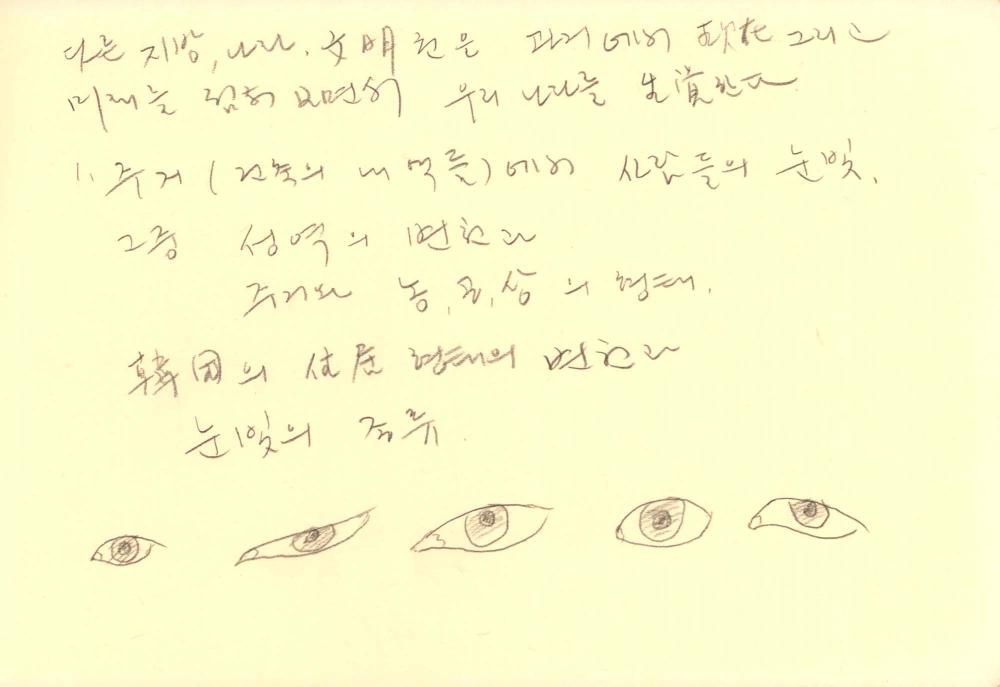 다른 지방, 나라. 文明권은 과거에서 現在 그리고
미래를 점쳐 보면서 우리 나라를 生覚한다
1. 주거 (건축의 내 벽들)에서 사람들의 눈빛.
그중 성역의 변천과
주거와 농,공,상의 형태.
韓国의 住居 형태의 변천과
눈빛의 종류.